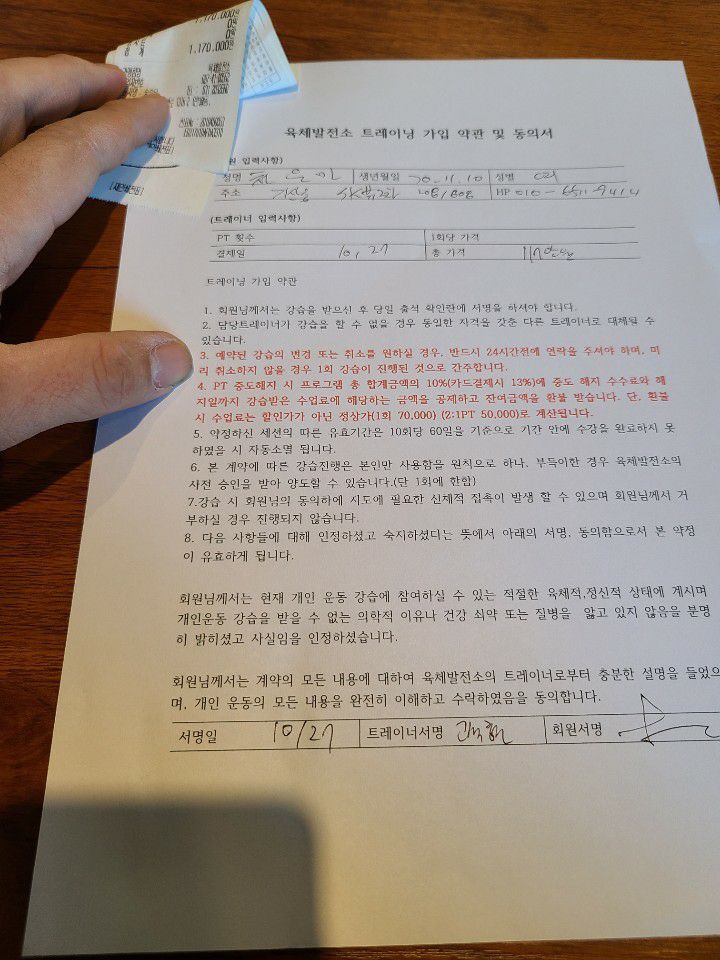 1,170,000원
0원
0원
1,170,000원
육체발전소 트레이닝 가입 약관 및 동의서
원 입력사항)
성명 생년월일 70.11.10 성별 여
주소 HP 010-6511-9414
(트레이너 입력사항)
PT 횟수 1회당 가격
결제일 10, 27 총 가격 117만원
트레이닝 가입 약관
1. 회원님께서는 강습을 받으신 후 당일 출석 확인란에 서명을 하셔야 합니다.
2. 담당트레이너가 강습을 할 수 없을 경우 동일한 자격을 갖춘 다른 트레이너로 대체될 수
있습니다.
3. 예약된 강습의 변경 또는 취소를 원하실 경우, 반드시 24시간전에 연락을 주셔야 하며, 미
리 취소하지 않을 경우 1회 강습이 진행된 것으로 간주합니다.
4. PT 중도해지 시 프로그램 총 합계금액의 10%(카드결제시 13%)에 중도 해지 수수료와 해
지일까지 강습받은 수업료에 해당하는 금액을 공제하고 잔여금액을 환불 받습니다. 단, 환불
시 수업료는 할인가가 아닌 정상가(1회 70,000) (2:1PT 50,000)로 계산됩니다.
5. 약정하신 세션의 따른 유효기간은 10회당 60일을 기준으로 기간 안에 수강을 완료하시 못
하였을 시 자동소멸 됩니다.
6. 본 계약에 따른 강습진행은 본인만 사용함을 원칙으로 하나, 부득이한 경우 육체발전소의
사전 승인을 받아 양도할 수 있습니다.(단 1회에 한함)
7.강습 시 회원님의 동의하에 시도에 필요한 신체적 접촉이 발생 할 수 있으며 회원님께서 거
부하실 경우 진행되지 않습니다.
8. 다음 사항들에 대해 인정하셨고 숙지하셨다는 뜻에서 아래의 서명, 동의함으로서 본 약정
이 유효하게 됩니다.
회원님께서는 현재 개인 운동 강습에 참여하실 수 있는 적절한 육체적,정신적 상태에 계시며
개인운동 강습을 받을 수 없는 의학적 이유나 건강 쇠약 또는 질병을 앓고 있지 않음을 분명
히 밝히셨고 사실임을 인정하셨습니다.
회원님께서는 계약의 모든 내용에 대하여 육체발전소의 트레이너로부터 충분한 설명을 들었으
며, 개인 운동의 모든 내용을 완전히 이해하고 수락하였음을 동의합니다.
서명일 10/27 트레이너서명 회원서명